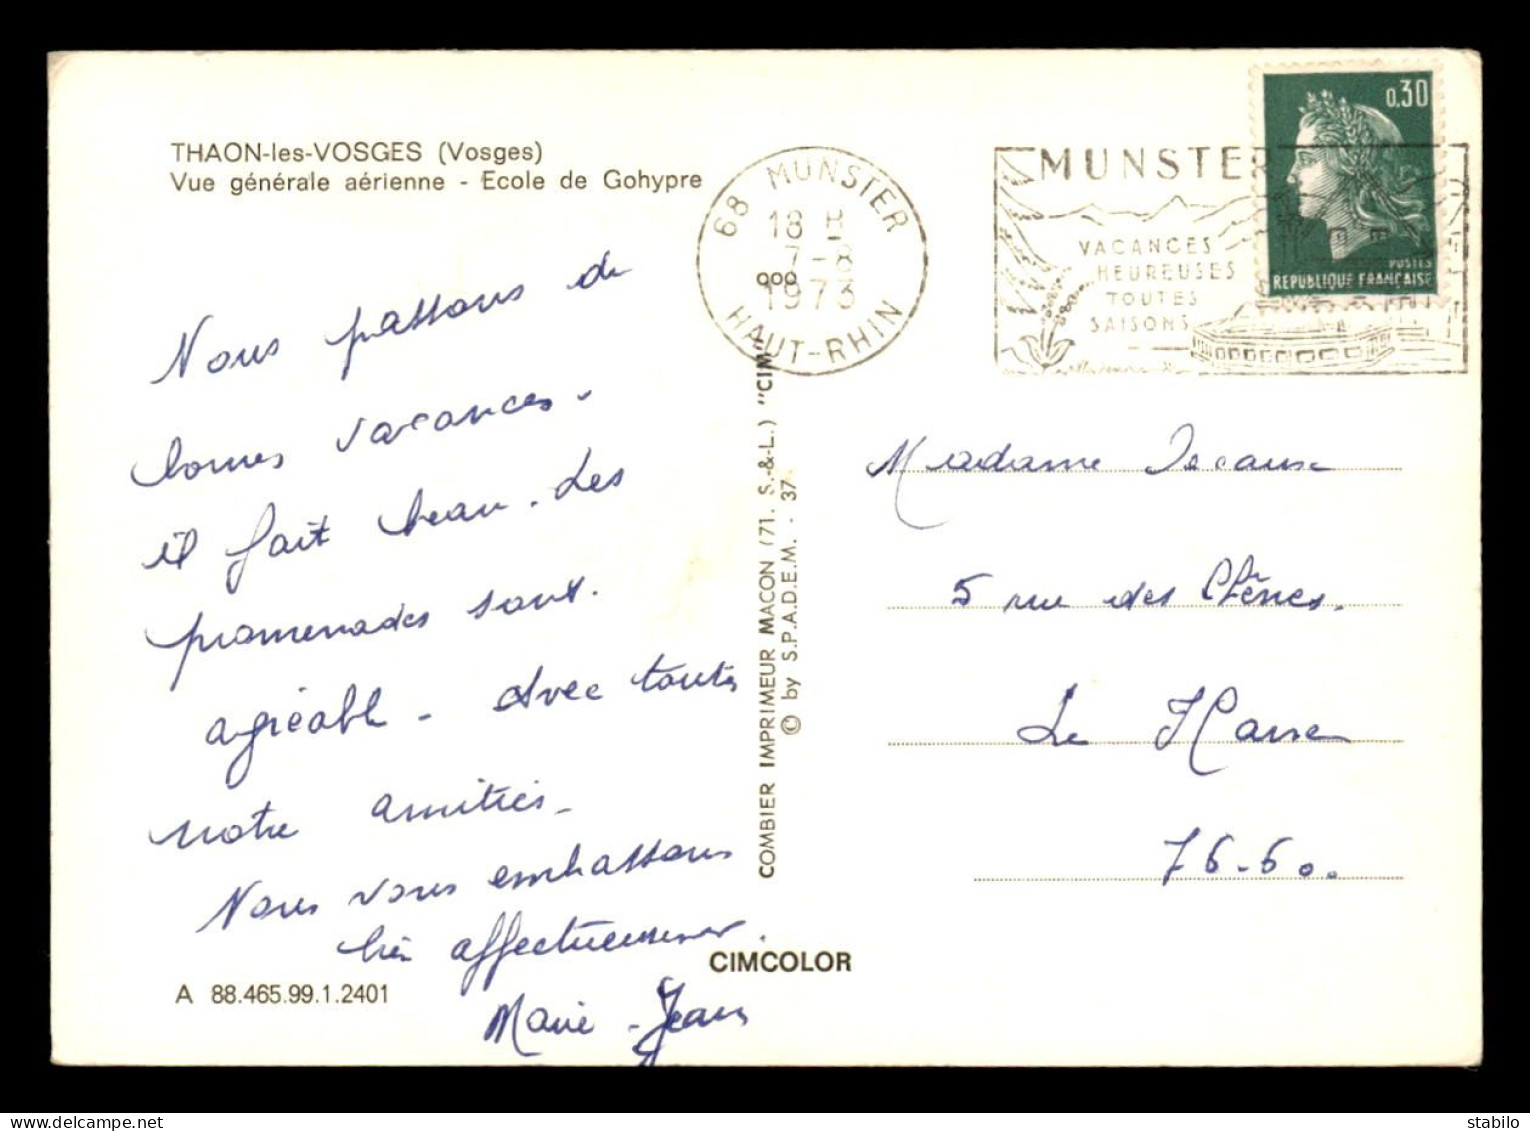 THAON-les-VOSGES (Vosges)
Vue générale aérienne - Ecole de Gohypre
68 MUNSTER
18 H
7-8
1973
HAUT-RHIN
MUNSTER
VACANCES
HEUREUSES
TOUTES
SAISONS
0,30
POSTES
REPUBLIQUE FRANÇAISE
Nous passons de
bonnes vacances.
il fait beau. Les
promenades sont.
agréable - Avec toutes
notre amitiés_
Nous vous embrassons
bien affectueusement.
Marie-Jean
COMBIER IMPRIMEUR MACON (71. S.-&-L.) "CIM"
© by S.P.A.D.E.M. - 37
Madame
5 rue des Chênes.
Le Havre
76-60.
CIMCOLOR
A 88.465.99.1.2401
stabilo
delcampe.net